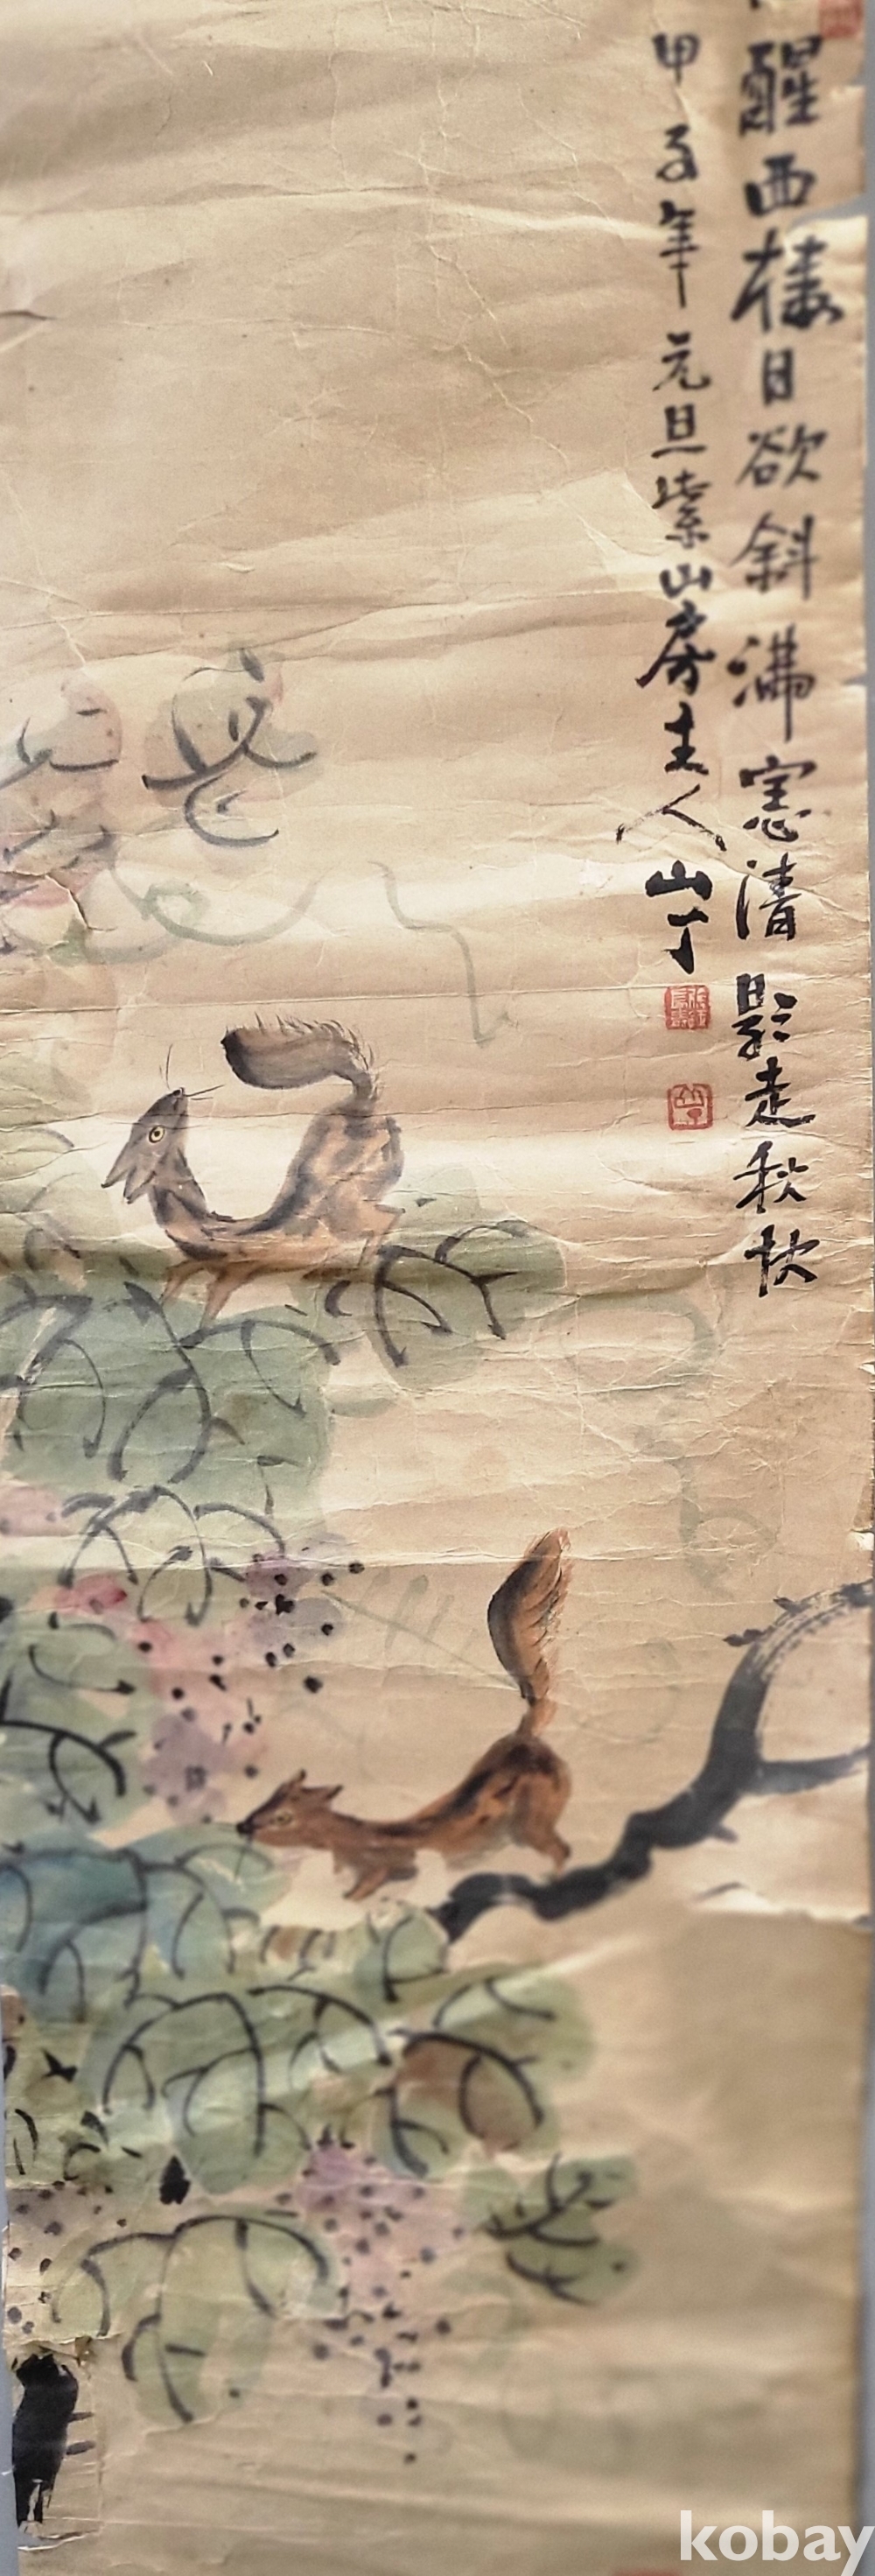 醒西楼日欲斜滿窓清影走秋
甲子年元旦紫山房主人山丁
kobay